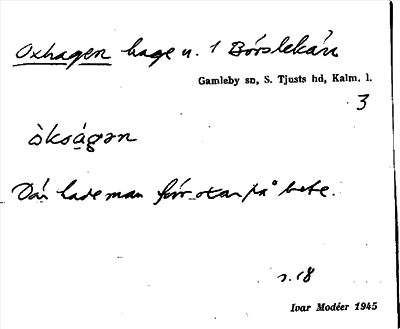 Oxhagen hage n. 1 Börslekån
Gamleby sn, S. Tjusts hd, Kalm. l.
3
òkságən
Där hade man förr oxar på bete.
s. 18
Ivar Modéer 1945